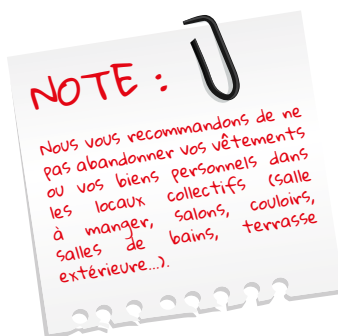 NOTE :
Nous vous recommandons de ne
pas abandonner vos vêtements
ou vos biens personnels dans
les locaux collectifs (salle
à manger, salons, couloirs,
salles de bains, terrasse
extérieure...).